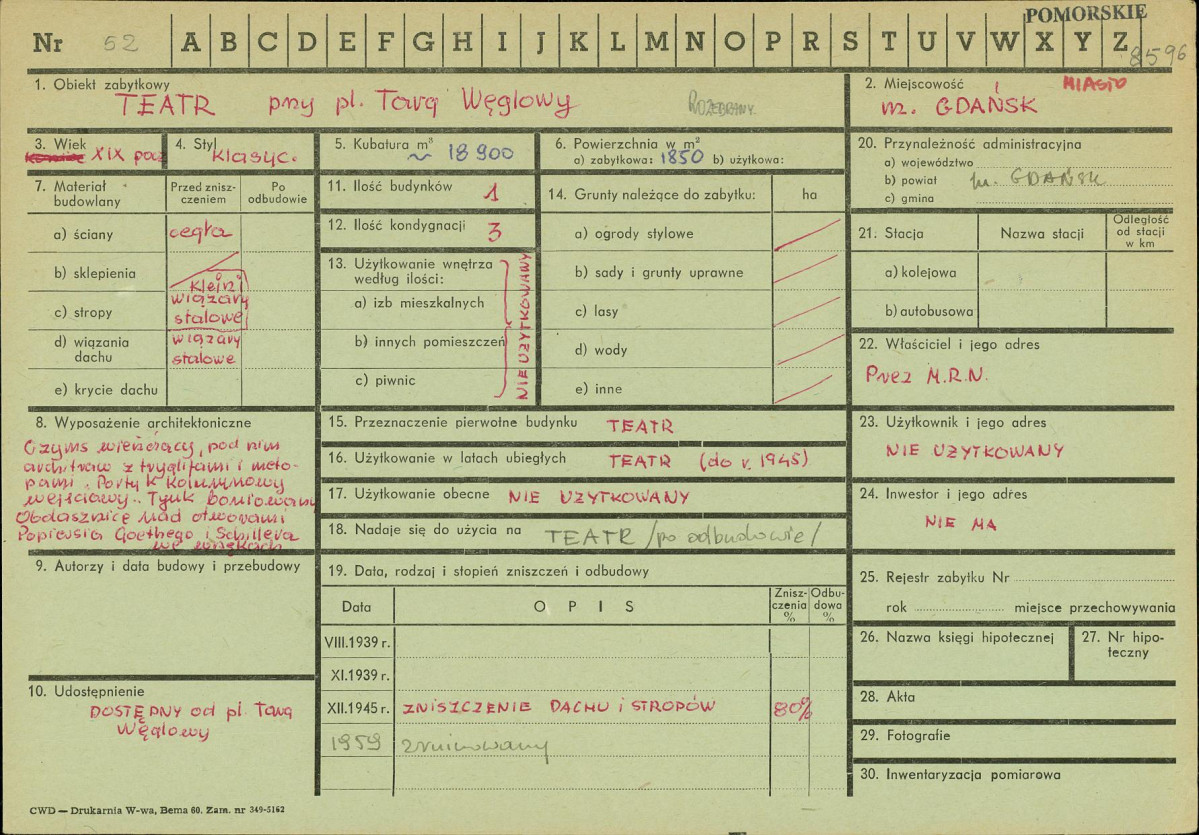 POMORSKIE
Nr 52 A B C D E F G H I J K L M N O P R S T U V W X Y Z
8596
1. Obiekt zabytkowy
TEATR przy pl. Targ Węglowy
ROZEBRANY
2. Miejscowość MIASTO
m. GDAŃSK
3. Wiek
XIX pocz
4. Styl
klasyc.
5. Kubatura m³
~ 18 900
6. Powierzchnia w m²
a) zabytkowa: 1850 b) użytkowa:
20. Przynależność administracyjna
a) województwo
b) powiat m. GDAŃSK
c) gmina
7. Materiał budowlany
Przed znisz-
czeniem
Po
odbudowie
a) ściany cegła
b) sklepienia
c) stropy
Kleina
wiązary
stalowe
d) wiązania
dachu
wiązary
stalowe
e) krycie dachu
11. Ilość budynków 1
12. Ilość kondygnacji 3
13. Użytkowanie wnętrza
według ilości:
a) izb mieszkalnych
b) innych pomieszczeń
c) piwnic
NIE UŻYTKOWANY
14. Grunty należące do zabytku: ha
a) ogrody stylowe
b) sady i grunty uprawne
c) lasy
d) wody
e) inne
21. Stacja
Nazwa stacji
Odległość
od stacji
w km
a) kolejowa
b) autobusowa
22. Właściciel i jego adres
Prez M.R.N.
8. Wyposażenie architektoniczne
Gzyms wieńczący, pod nim
architraw z tryglifami i meto-
pami. Portyk kolumnowy
wejściowy. Tynk boniowany
Obdasznice nad otworami
Popiersia Goethego i Schillera
we wnękach
15. Przeznaczenie pierwotne budynku TEATR
16. Użytkowanie w latach ubiegłych TEATR (do r. 1945)
17. Użytkowanie obecne NIE UŻYTKOWANY
18. Nadaje się do użycia na TEATR /po odbudowie/
23. Użytkownik i jego adres
NIE UŻYTKOWANY
24. Inwestor i jego adres
NIE MA
9. Autorzy i data budowy i przebudowy
10. Udostępnienie
DOSTĘPNY od pl. Targ
Węglowy
19. Data, rodzaj i stopień zniszczeń i odbudowy
Data
OPIS
Znisz-
czenia
%
Odbu-
dowa
%
VIII.1939 r.
XI.1939 r.
XII.1945 r. ZNISZCZENIE DACHU i STROPÓW 80%
1959 zrujnowany
25. Rejestr zabytku Nr
rok miejsce przechowywania
26. Nazwa księgi hipotecznej
27. Nr hipo-
teczny
28. Akta
29. Fotografie
30. Inwentaryzacja pomiarowa
CWD — Drukarnia W-wa, Bema 60. Zam. nr 349-5162